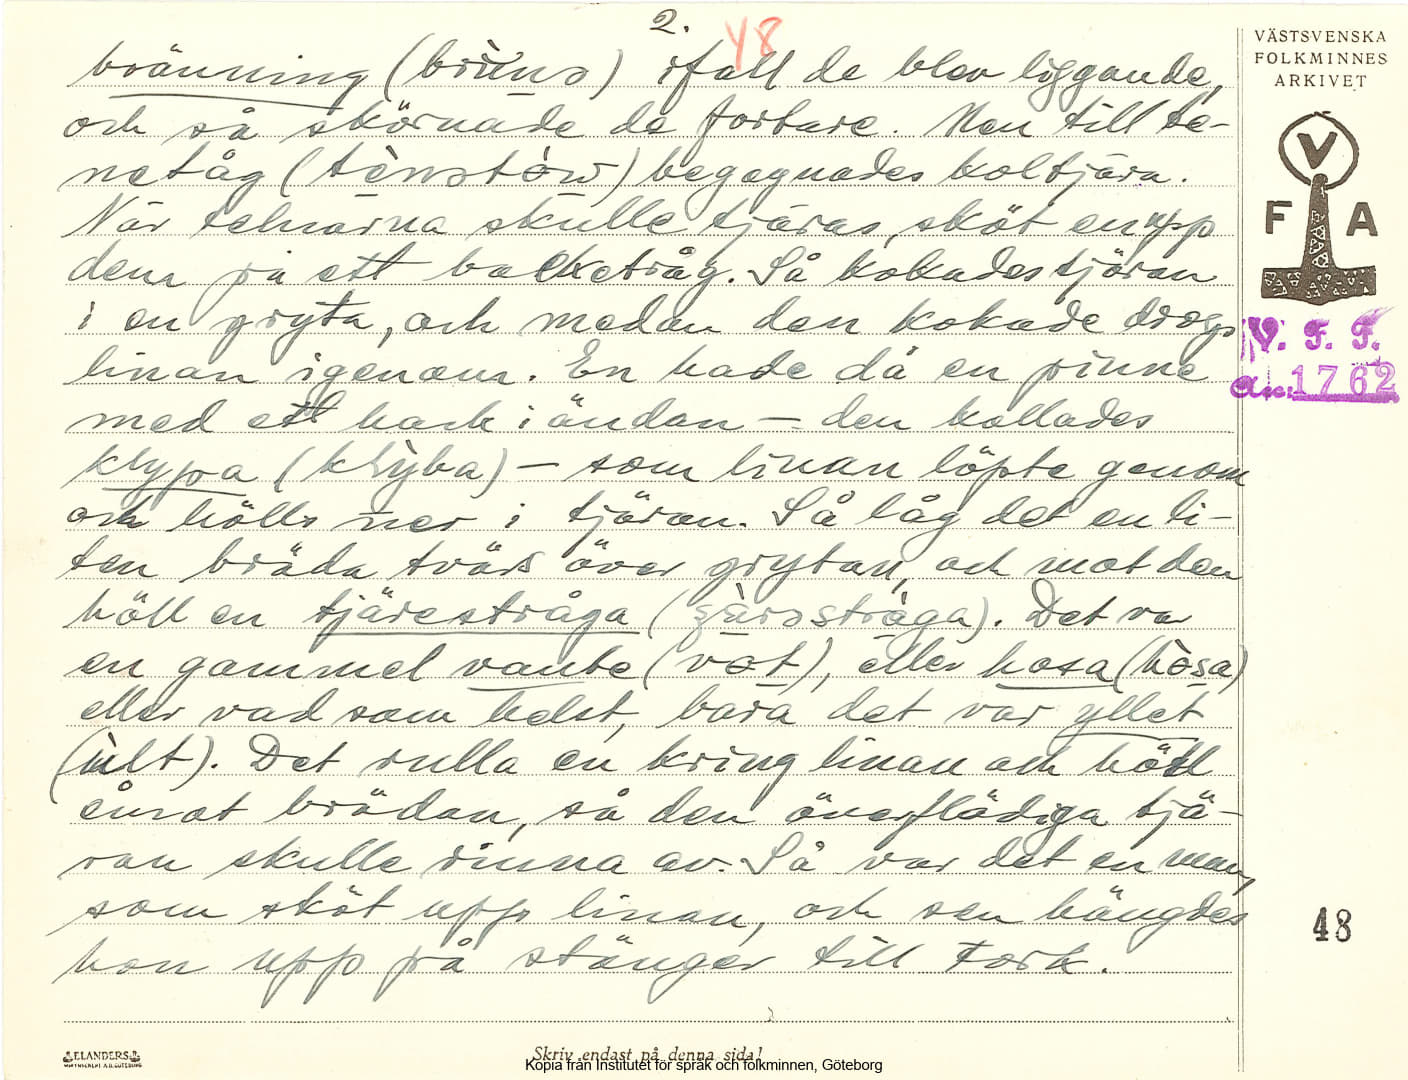 2.
48
VÄSTSVENSKA
FOLKMINNES
ARKIVET
V
F A
V. F. F.
An: 1762
bränning (brùns) ifall de blev liggande,
och så skörnade de fortare. Men till te-
netåg (tènstòw) begagnades koltjära.
När telnarna skulle tjäras, sköt en upp
dem på ett balketråg. Så kokades tjäran
i en gryta, och medan den kokade drogs
linan igenom. En hade då en pinne
med ett hack i ändan – den kallades
klypa (klỳba) – som linan löpte genom
och hölls ner i tjäran. Så låg det en li-
ten bräda tvärs över grytan, och mot den
höll en tjärestråga (
en gammel vante (vɔt), eller hosa (hòsa)
eller vad som helst, bara det var yllet
(ùlt). Det rulla en kring linan och höll
emot brädan, så den överflödiga tjä-
ran skulle rinna av. Så var det en man,
som sköt upp linan, och sen hängdes
hon upp på stänger till tork.
48
ELANDERS
Skriv endast på denna sida!
Kopia från Institutet för språk och folkminnen, Göteborg